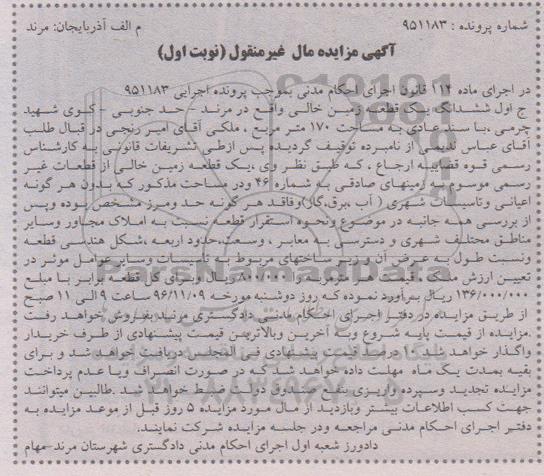 شماره پرونده : ۹۵۱۱۸۳
م الف آذربایجان: مرند
آگهی مزایده مال غیرمنقول (نوبت اول)
در اجرای ماده ۱۱۴ قانون اجرای احکام مدنی بموجب پرونده اجرایی ۹۵۱۱۸۳
ج اول ششدانگ یک قطعه زمین خالی واقع در مرند - حد جنوبی - کوی شهید
چرمی ،با سند عادی به مساحت ۱۷۰ متر مربع ، ملکی آقای امیر رنجی در قبال طلب
آقای عباس ندیمی از نامبرده توقیف گردیده پس ازطی تشریفات قانونی به کارشناس
رسمی قوه قضاییه ارجاع ، که طبق نظر وی ،یک قطعه زمین خالی از قطعات غیر
رسمی موسوم به زمینهای صادقی به شماره ۴۶ ودر مساحت مذکور که بدون هر گونه
اعیانی وتاسیسات شهری ( آب ،برق،گاز)وفاقد هر گونه حد ومرز مشخص بوده وپس
از بررسی همه جانبه در موضوع ونحوه استقرار قطعه نسبت به املاک مجاور وسایر
مناطق مختلف شهری و دسترسی به معابر ، وسعت،حدود اربعه ،شکل هندسی قطعه
ونسبت طول به عرض آن ودبیر ساختهای مربوط به تأسیسات وسایر عوامل موثر در
تعیین ارزش ملک ، قیمت هر مترمربع را ۸۰۰/۰۰۰ ریال وبرای کل قطعه برابر با مبلغ
۱۳۶/۰۰۰/۰۰۰ ریال برآورد نموده که روز دوشنبه مورخه ۹۶/۱۱/۰۹ ساعت ۹ الی ۱۱ صبح
از طریق مزایده در دفتر اجرای احکام مدنی دادگستری مرند بفروش خواهد رفت
.مزایده از قیمت پایه شروع وبه آخرین وبالاترین قیمت پیشنهادی از طرف خریدار
واگذار خواهد شد.۱۰ درصد قیمت پیشنهادی فی المجلس دریافت خواهد شد و برای
بقیه بمدت یک ماه مهلت داده خواهد شد که در صورت انصراف ویا عدم پرداخت
مزایده تجدید وسپرده واریزی بنفع صندوق دولت ضبط خواهد شد .طالبین میتوانند
جهت کسب اطلاعات بیشتر وبازدید از مال مورد مزایده ۵ روز قبل از موعد مزایده به
دفتر اجرای احکام مدنی مراجعه ودر جلسه مزایده شرکت نمایند.
دادورز شعبه اول اجرای احکام مدنی دادگستری شهرستان مرند-مهام
ParsNamadData
۰۲۱-۸۸۳۴۹۶۷۰-۵